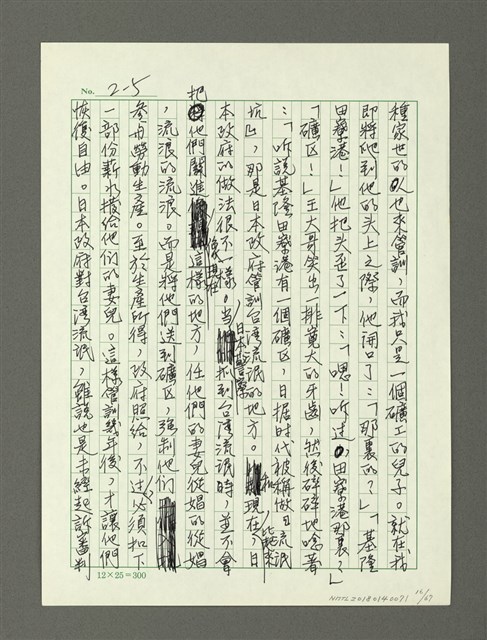 No. 2-5
種家世的人也來管訓，而我只是一個礦工的兒子。就在我
即將 到他的头上之際，他開口了：「那裏的？」「基隆
田寮港！」他把头歪了一下：「嗯！听过，田寮港那裏？」
「礦区！」王大哥笑出一排寬大的牙齒，然後碎碎地唸著
：「听說基隆田寮港有一個礦区，日据时代被稱做『流氓
坑』，那是日本政府管訓台湾流氓的地方。和現在比起來，日
本政府的做法很不一樣。當日本警察抓到台湾流氓時，並不會
把他們關進像現在這樣的地方，任他們的妻兒從娼的從娼
，流浪的流浪。而是將他們送到礦区，強制他們
參与勞動生產。至於生產所得，政府照給，不过必須扣下
一部份薪水撥給他們的妻兒。這樣管訓幾年後，才讓他們
恢復自由。日本政府對台湾流氓，雖說也是未經起訴審判
12×25=300
NMTL20180140071 12/67